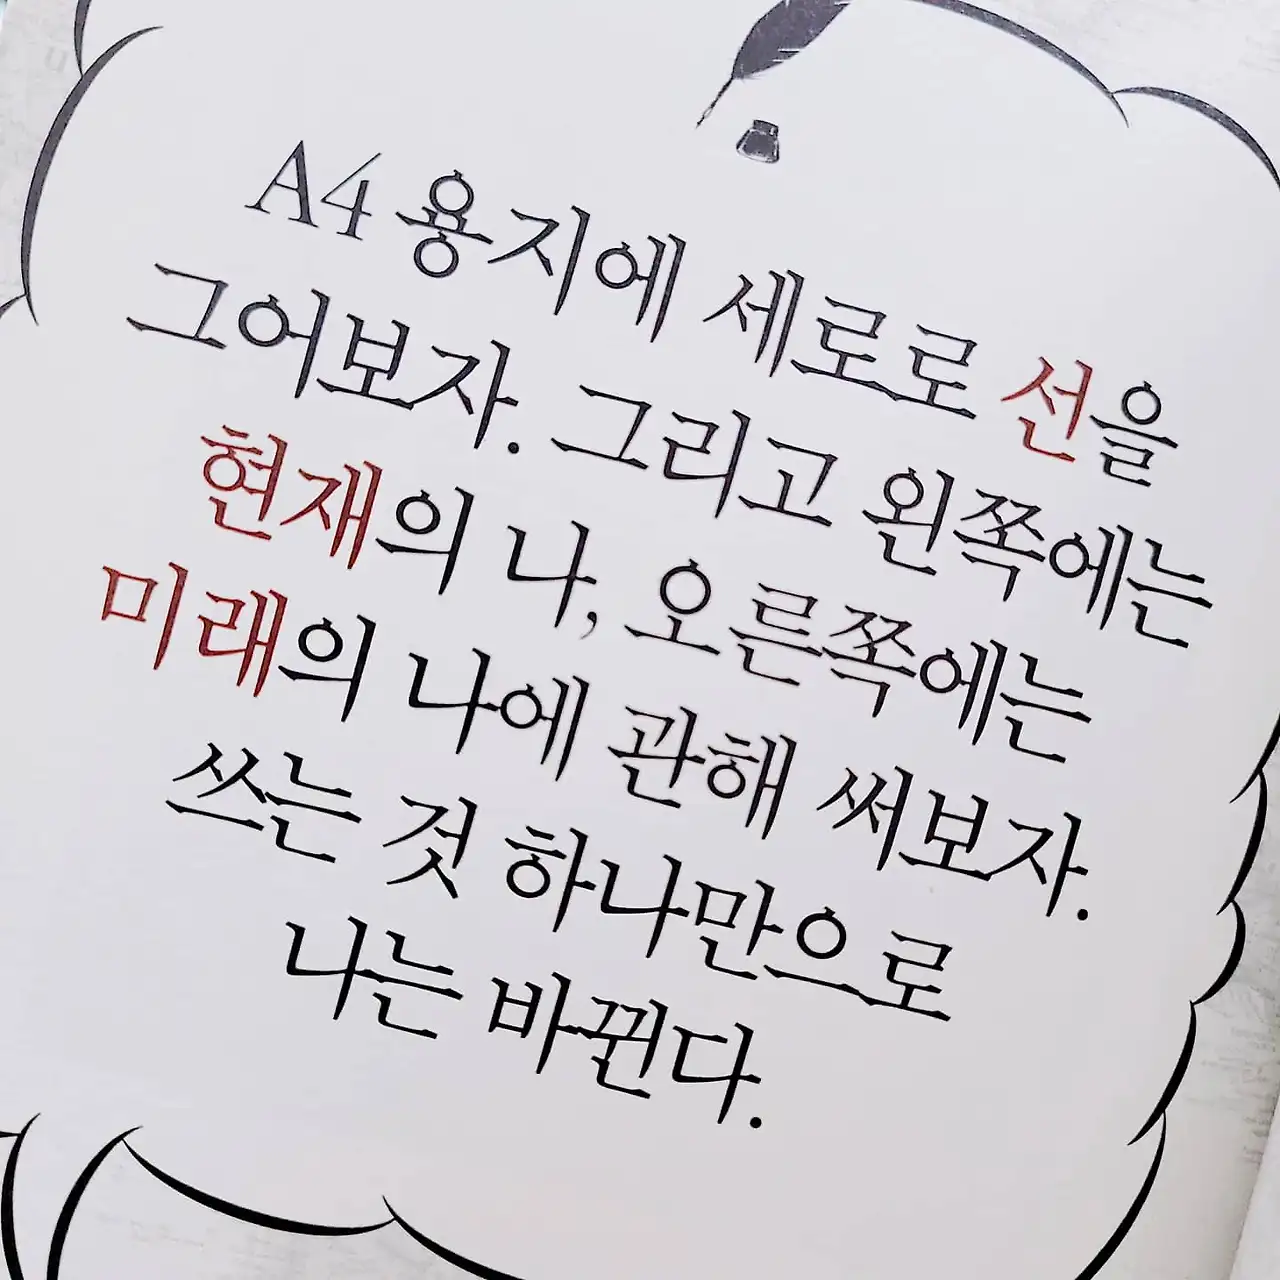 A4 용지에 세로로 선을
그어보자. 그리고 왼쪽에는
현재의 나, 오른쪽에는
미래의 나에 관해 써보자.
쓰는 것 하나만으로
나는 바뀐다.